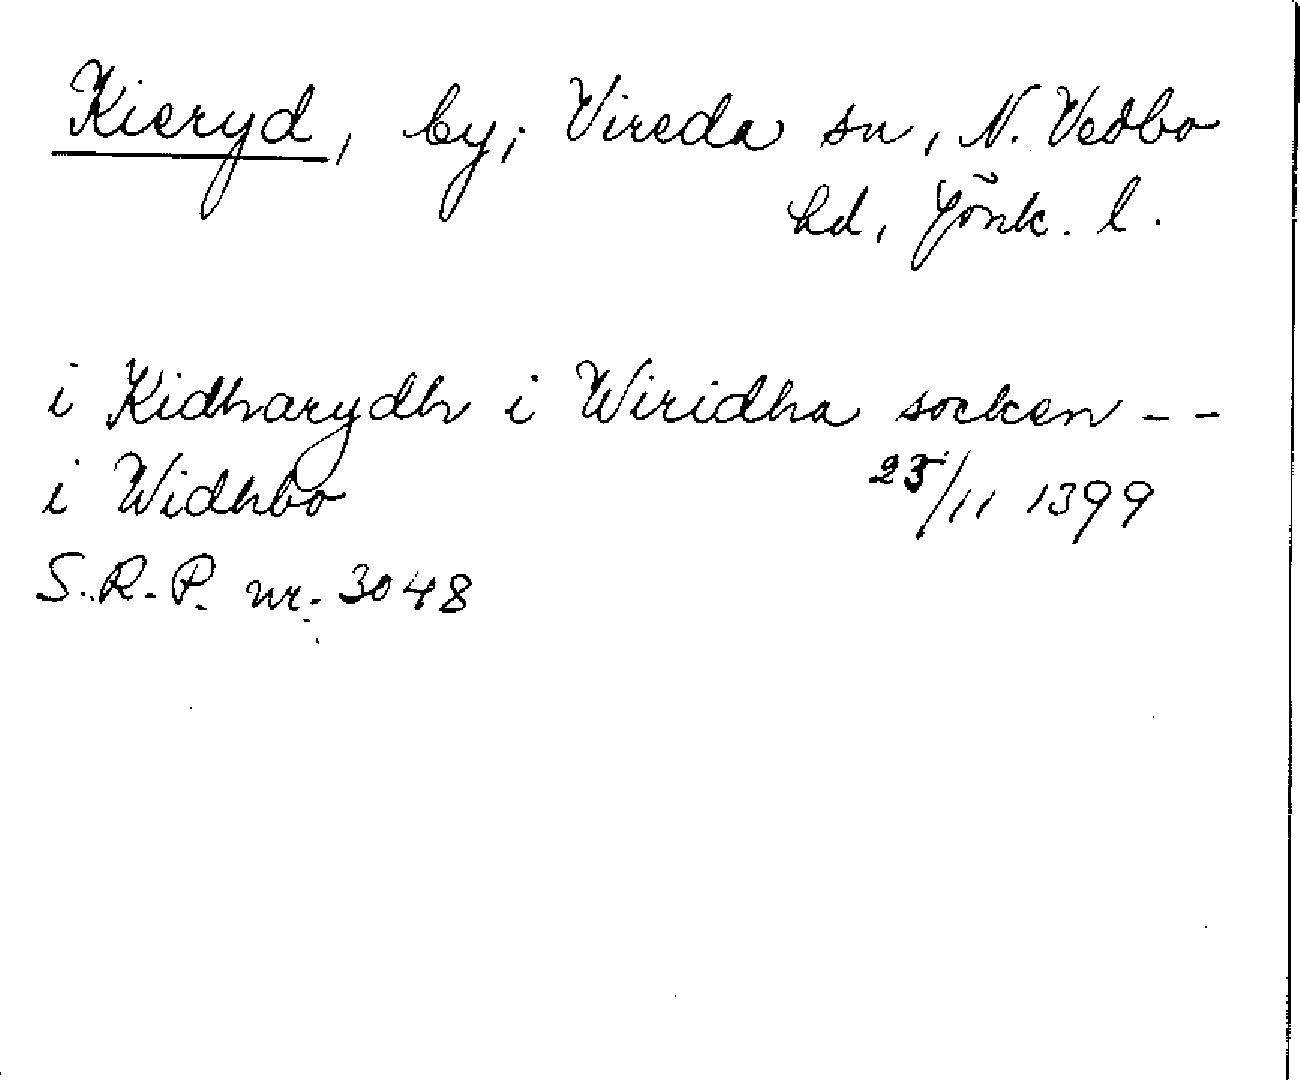 Kieryd, by; Vireda sn, N. Vedbo
hd, Jönk. l.
i Kidharydh i Wiridha socken - -
i Widhbo 25/11 1399
S.R.P. nr. 3048